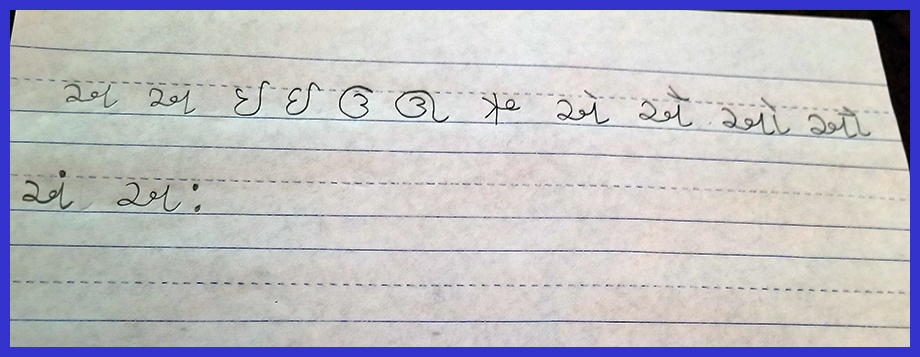 અ અ ઇ ઇ ઉ ઊ ઋ એ ઐ ઓ ઔ
અં અઃ